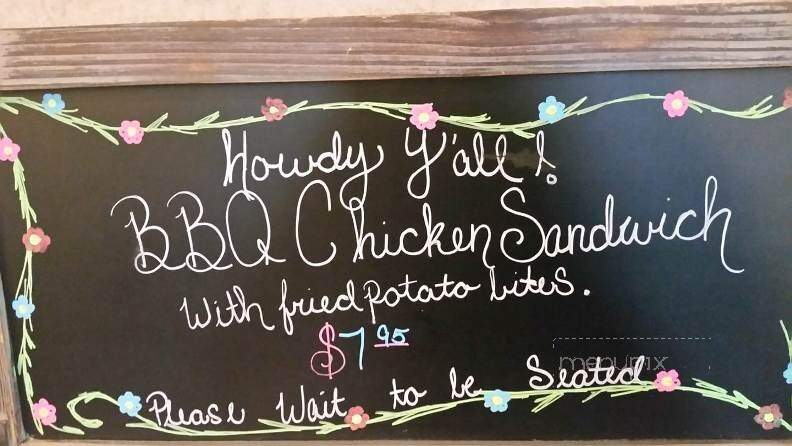 Howdy Y'all!
BBQ Chicken Sandwich
With fried potato bites.
$7 95
menupix
Please Wait to be Seated